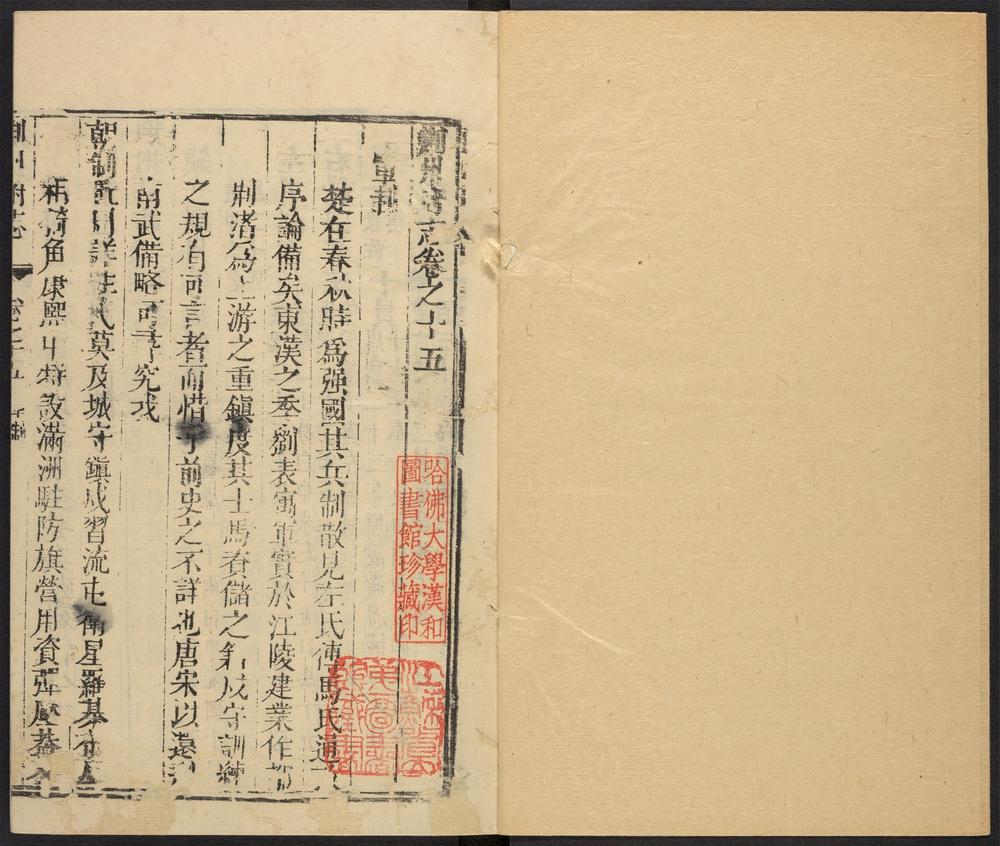 荆州府志卷之十五
軍制
楚在春秋時爲强國其兵制散見左氏傳馬氏通
序論備矣東漢之季劉表寓軍實於江陵建業作都
荆渚屹為上游之重鎮度其士馬資儲之 戍守訓練
之規有可言者而惜乎前史之不詳也唐宋以
武備略可尋究我
朝制 詳 莫及城守鎮戍習流屯衛星羅棊布
犄角康熙 特設滿洲駐防旗營用資彈壓蓋
荆州府志 卷之十五
哈佛大學漢和
圖書館珍藏印